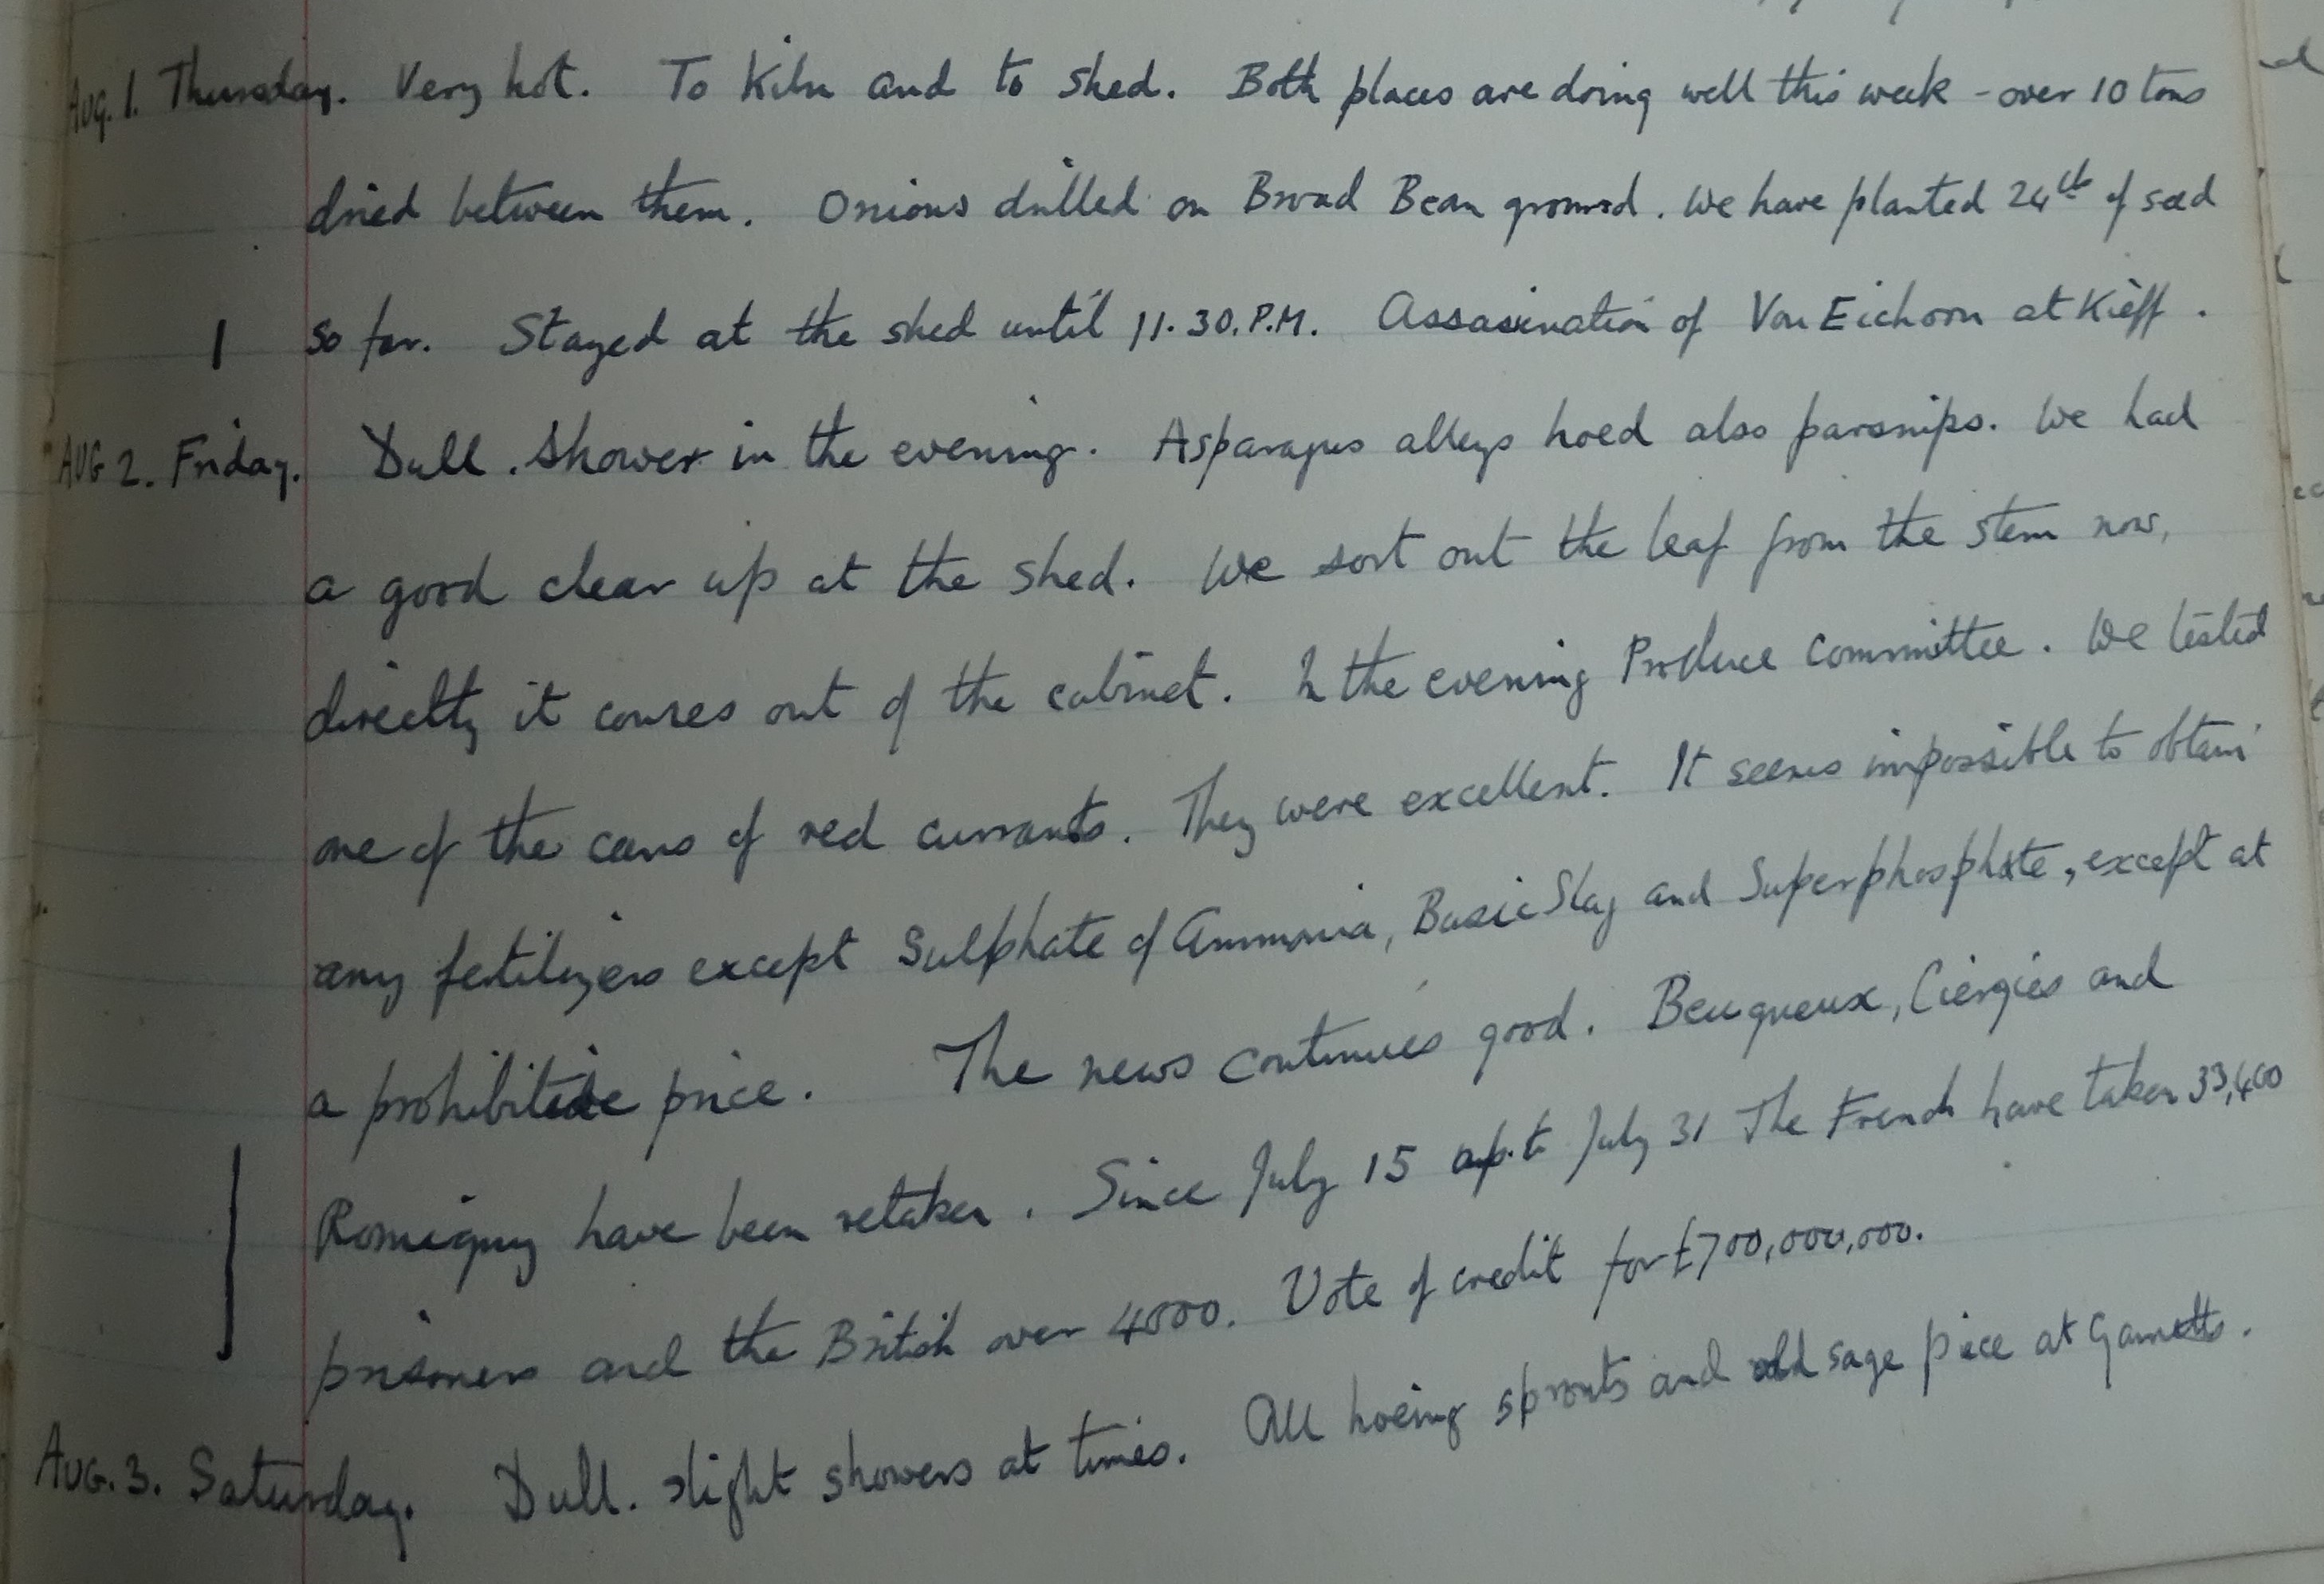 Aug. 1. Thursday. Very hot. To Kiln and to shed. Both places are doing well this week - over 10 tons
dried between them. Onions drilled on Broad Bean ground. We have planted 24lb of seed
so far. Stayed at the shed until 11.30.P.M. Assasination of Von Eichorn at Kieff.
AUG 2. Friday. Dull. Shower in the evening. Asparagus alleys hoed also parsnips. We had
a good clear up at the shed. We sort out the leaf from the stem now,
directly it comes out of the cabinet. In the evening Produce Committee. We tested
one of the cans of red currants. They were excellent. It seems impossible to obtain
any fertilizers except Sulphate of Ammonia, Basic Slag and Superphosphate, except at
a prohibitive price. The news continues good. Beugneux, Ciergies and
Romigny have been retaken. Since July 15 up to July 31 The French have taken 33,400
prisoners and the British over 4000. Vote of credit for £700,000,000.
AUG. 3. Saturday. Dull. slight showers at times. All hoeing sprouts and old sage piece at